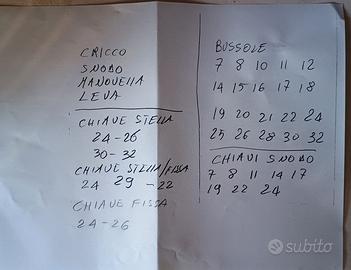 CRICCO
SNODO
MANOVELLA
LEVA
CHIAVE STELLA
24-26
30-32
CHIAVE STELLA/FISSA
24 29 - 22
CHIAVE FISSA
24-26
BUSSOLE
7 8 10 11 12
14 15 16 17 18
19 20 21 22 24
25 26 28 30 32
CHIAVI SNODO
7 8 11 14 17
19 22 24
subito